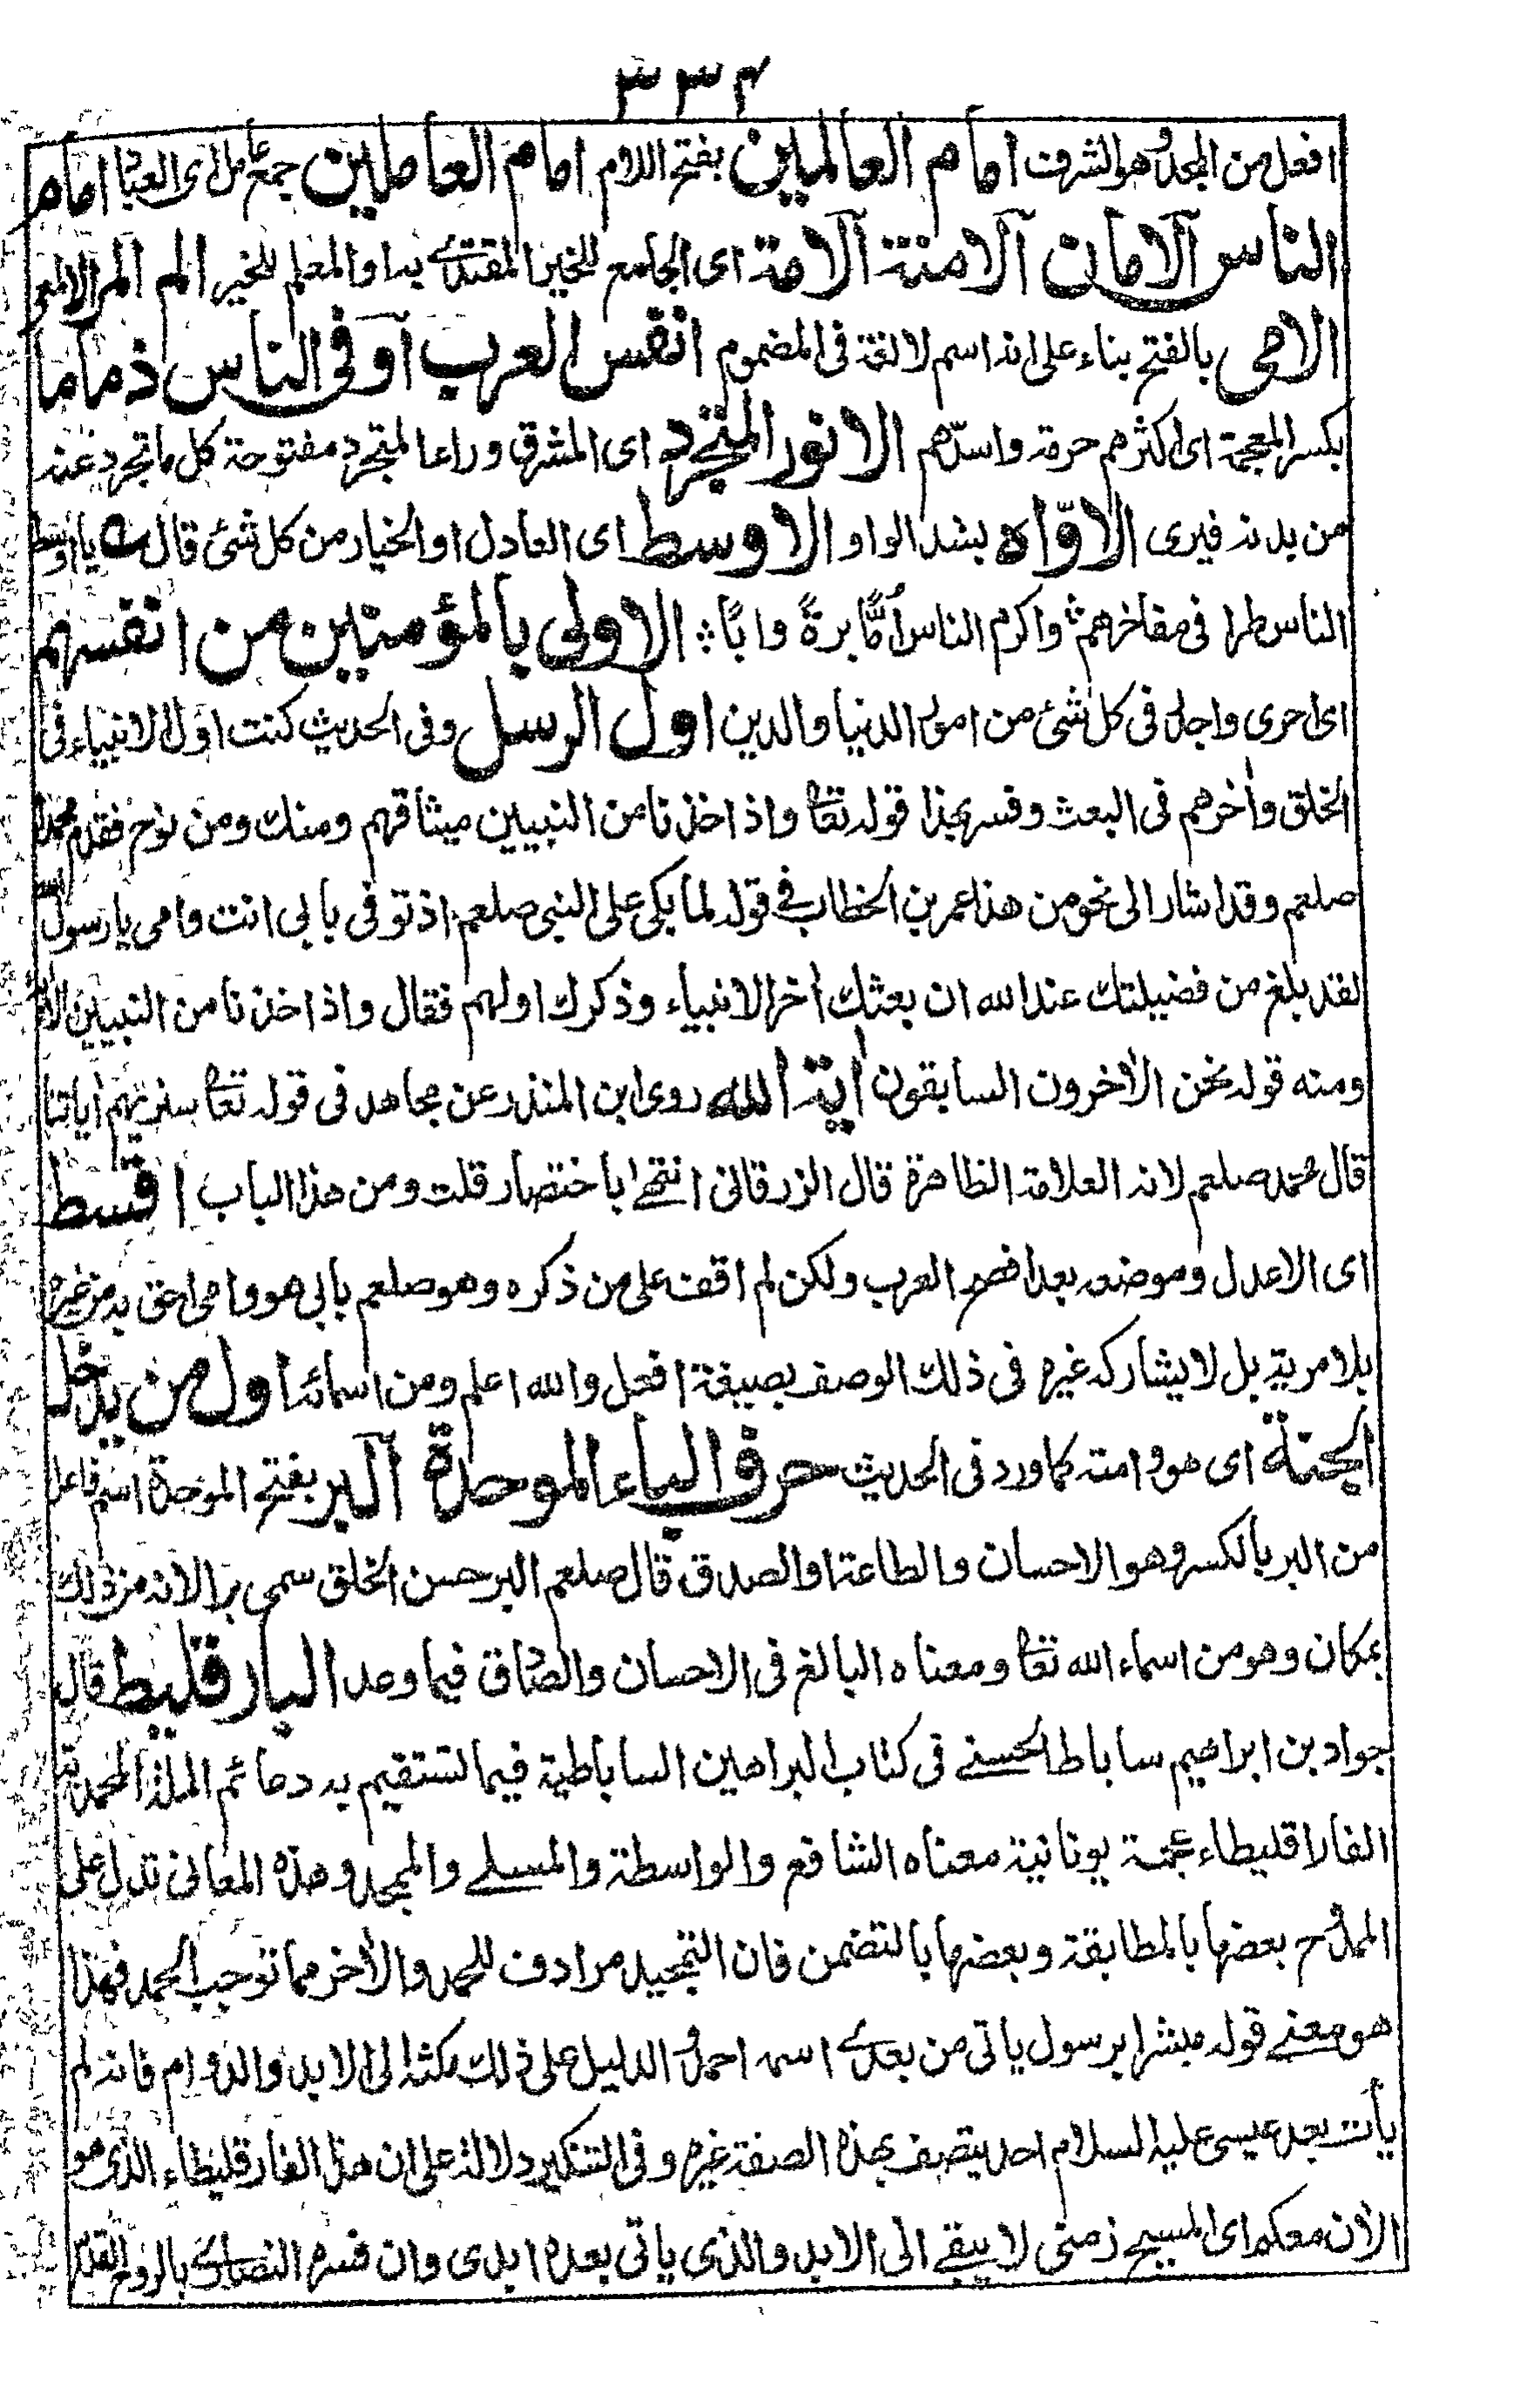 ٣٣٤
افعل من المجد وهو الشرف امام العالمين بفتح اللام امام العاملين جمع عامل اى العباد امام
الناس الامان الامنة الامة اى الجامع للخير المقتدى به او المعلم للخير الم المر الالمعى
الاحى بالفتح بناء على انه اسم لا لغة فى المضموم انفس العرب اوفى الناس ذماما
بكسر المعجمة اى اكثرهم حرمة واسدّهم الانور المتجرد اى المشرق وراء المتجرد مفتوحة كل ما تجرد عنه
من بدنه فيرى الاوّاه بشد الواو الاوسط اى العادل او الخيار من كل شئ قال يا اوسط
الناس طرا فى مفاخرهم واكرم الناس اُمًّا برةً وابًا الاولى بالمؤمنين من انفسهم
اى احرى واجل فى كل شئ من امور الدنيا والدين اول الرسل وفى الحديث كنت اول الانبياء فى
الخلق وأخرهم فى البعث وفسر بهذا قوله تعا واذ اخذنا من النبيين ميثاقهم ومنك ومن نوح فقدم محمدا
صلعم وقد اشار الى نحو من هذا عمر بن الخطاب فى قوله لما بكى على النبى صلعم اذ توفى بابى انت وامى يا رسول الله
لقد بلغ من فضيلتك عند الله ان بعثك أخر الانبياء وذكرك اولهم فقال واذ اخذنا من النبيين الأية
ومنه قوله نحن الأخرون السابقون أية الله روى ابن المنذر عن مجاهد فى قوله تعا سنريهم أياتنا
قال محمد صلعم لانه العلامة الظاهرة قال الزرقانى انتهى باختصار قلت ومن هذا الباب اقسط
اى الاعدل وموضعه بعد افصح العرب ولكن لم اقف على من ذكره وهو صلعم بابى هو وامى احق به من غيره
بلا مرية بل لا يشاركه غيره فى ذلك الوصف بصيغة افعل والله اعلم ومن اسمائه اول من يدخل
الجنة اى هو وامته كما ورد فى الحديث حرف الباء الموحدة البر بفتح الموحدة اسم فاعل
من البر بالكسر وهو الاحسان والطاعة او الصدق قال صلعم البر حسن الخلق سمى برا لانه من ذلك
بمكان وهو من اسماء الله تعا ومعناه البالغ فى الاحسان والصادق فيما وعد البارقليط قال
جواد بن ابراهيم ساباط الحسنى فى كتاب البراهين الساباطية فيما تستقيم به دعائم الملة المحمدية
الفارقليطاء عجمة يونانية معناه الشافع والواسطة والمسلى والممجد وهذه المعانى تدل على
المدح بعضها بالمطابقة وبعضها بالتضمن فان التمجيد مرادف للحمد والأخر مما توجب الحمد فهذا
هو معنى قوله مبشرا برسول ياتى من بعدى اسمه احمد والدليل على ذلك مكثه الى الابد والدوام فانه لم
يأت بعد عيسى عليه السلام احد يتصف بهذه الصفة غيره وفى التنكير دلالة على ان هذا الفارقليطاء الذى هو
الأن معكم اى المسيح زمنى لا يبقى الى الابد والذى ياتى بعده ابدى وان فسره النصارى بالروح القدس